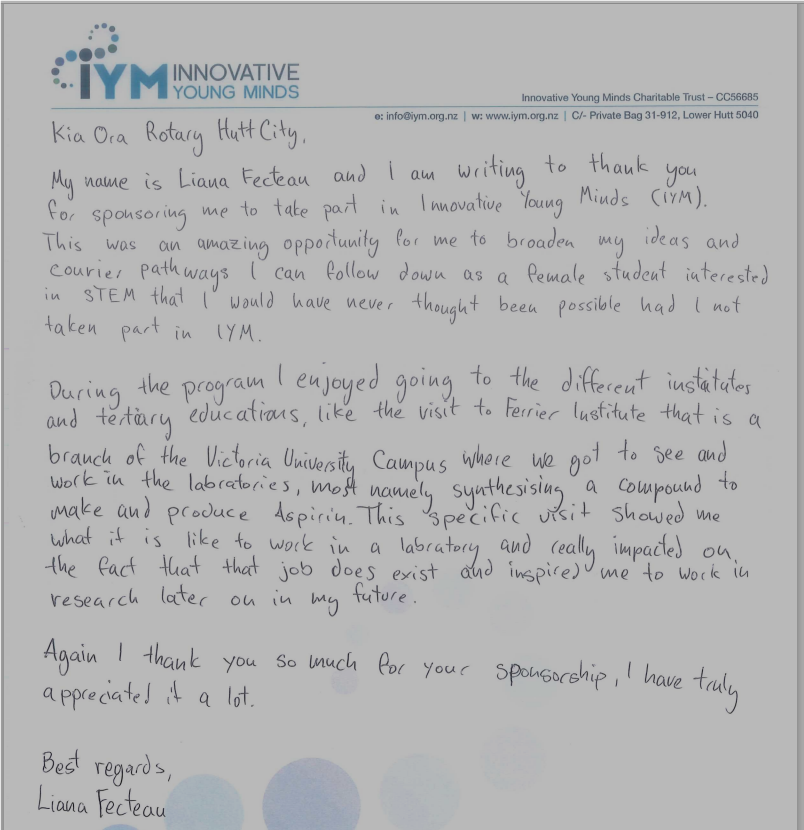 iYM INNOVATIVE
YOUNG MINDS
Innovative Young Minds Charitable Trust – CC56685
e: info@iym.org.nz | w: www.iym.org.nz | C/- Private Bag 31-912, Lower Hutt 5040
Kia Ora Rotary Hutt City,
My name is Liana Fecteau and I am writing to thank you
for sponsoring me to take part in Innovative Young Minds (IYM).
This was an amazing opportunity for me to broaden my ideas and
courier pathways I can follow down as a female student interested
in STEM that I would have never thought been possible had I not
taken part in IYM.
During the program I enjoyed going to the different institutes
and tertiary educations, like the visit to Ferrier Institute that is a
branch of the Victoria University Campus where we got to see and
work in the labratories, most namely synthesising a compound to
make and produce Aspirin. This specific visit showed me
what it is like to work in a labratory and really impacted on
the fact that that job does exist and inspired me to work in
research later on in my future.
Again I thank you so much for your sponsorship, I have truly
appreciated it a lot.
Best regards,
Liana Fecteau